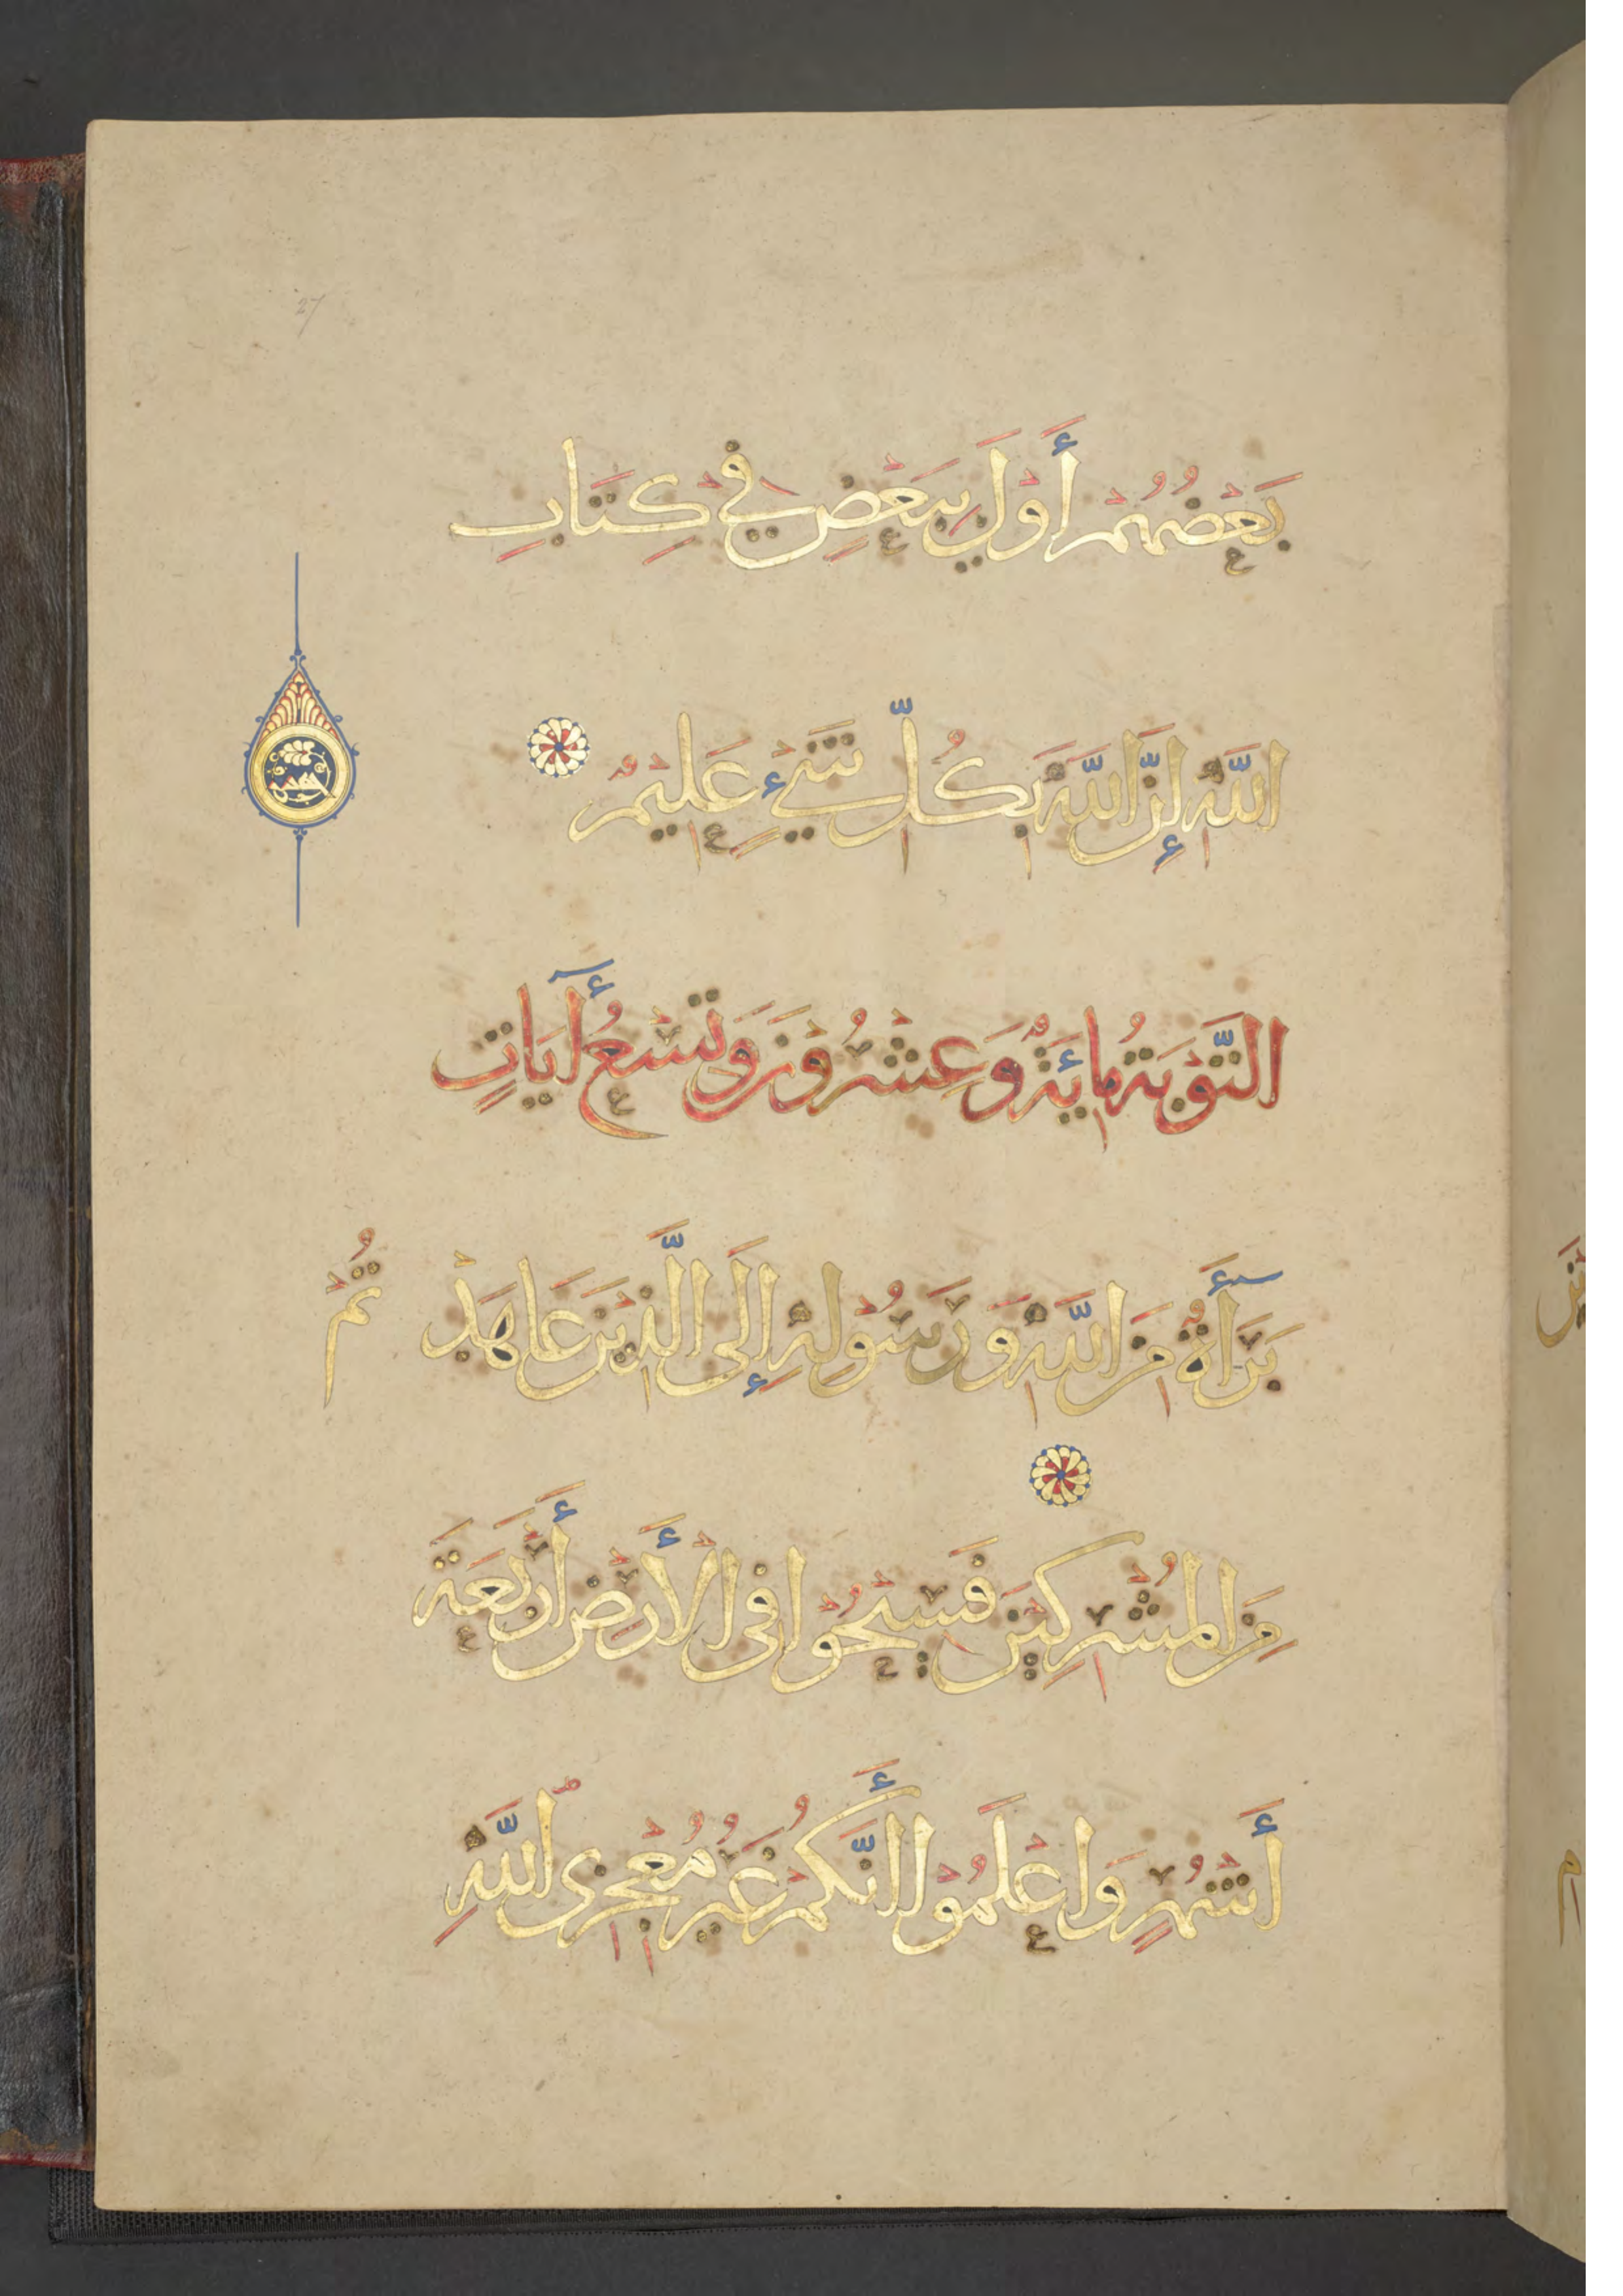 27
بَعْضُهُمْ أَوْلَىٰ بِبَعْضٍ فِي كِتَابِ
اللَّهِ إِنَّ اللَّهَ بِكُلِّ شَيْءٍ عَلِيمٌ
التَّوْبَةُ مِائَةٌ وَعِشْرُونَ وَتِسْعُ آيَاتٍ
بَرَآءَةٌ مِنَ اللَّهِ وَرَسُولِهِ إِلَى الَّذِينَ عَاهَدْ تُمْ
مِنَ الْمُشْرِكِينَ فَسِيحُوا فِي الْأَرْضِ أَرْبَعَةَ
أَشْهُرٍ وَاعْلَمُوا أَنَّكُمْ غَيْرُ مُعْجِزِي اللَّهِ